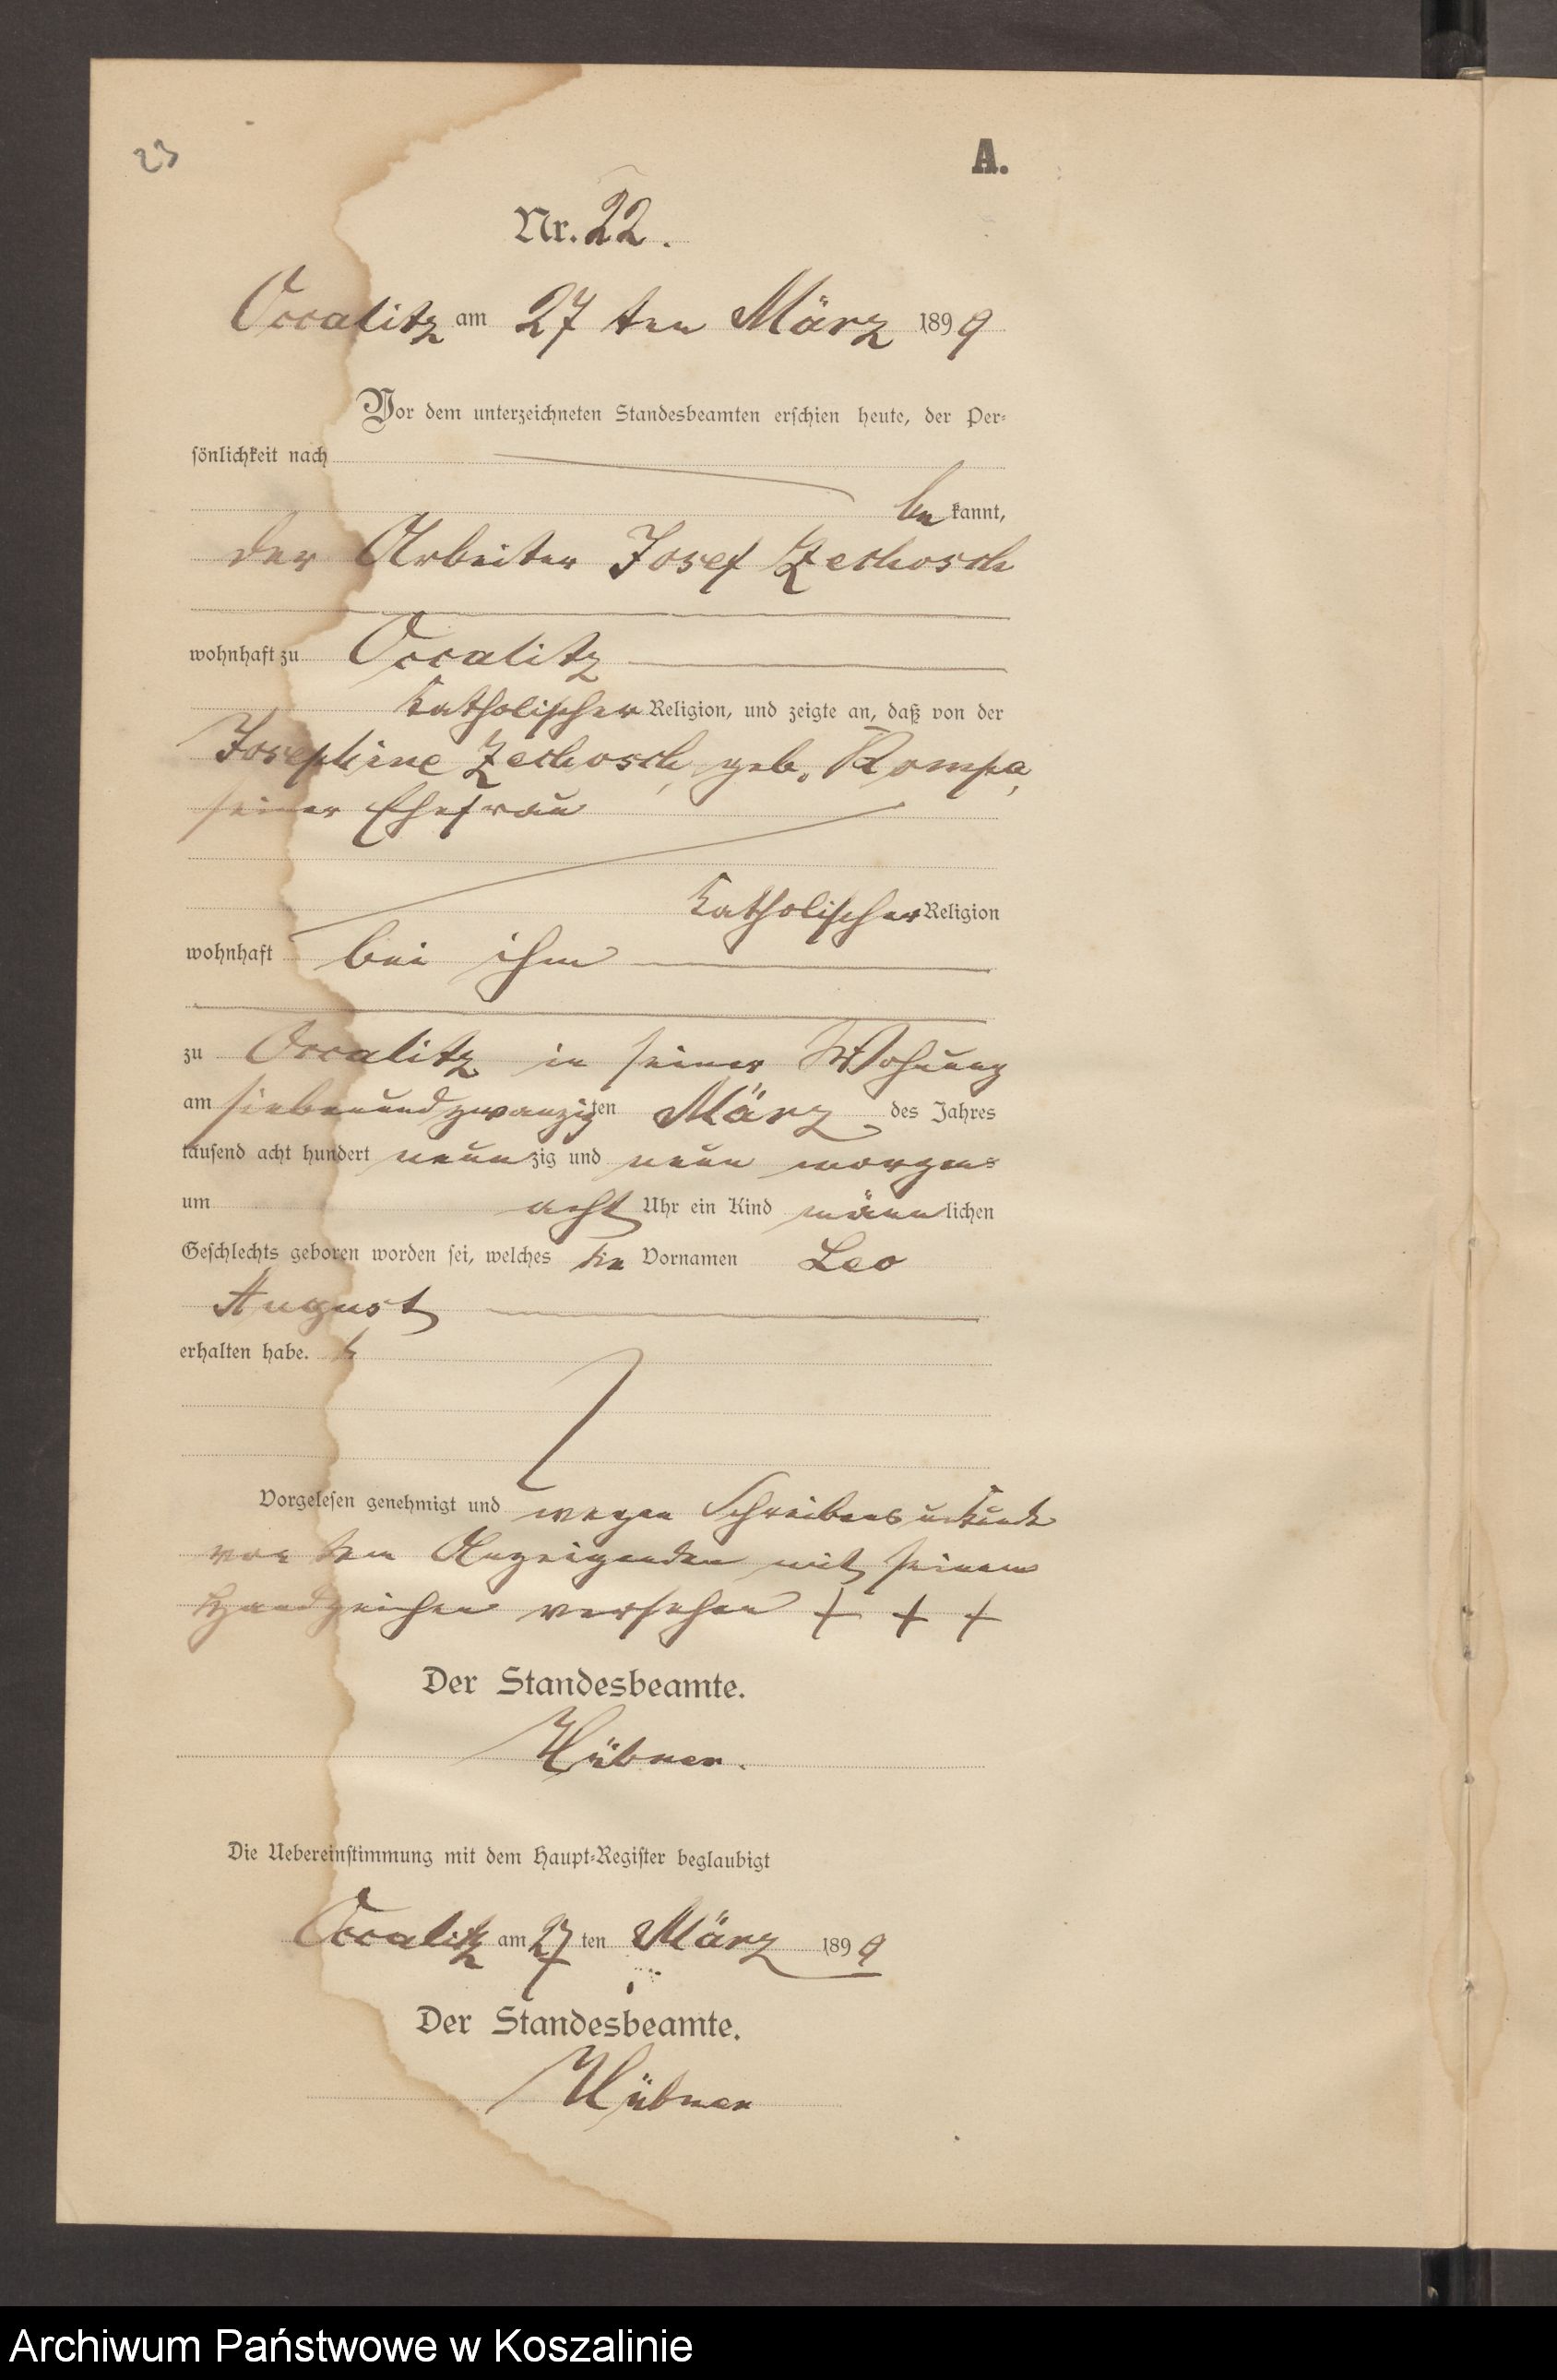 23
A.
Nr. 22.
Occalitz am 27 ten März 1899
Vor dem unterzeichneten Standesbeamten erschien heute, der Per-
sönlichkeit nach
bekannt,
der Arbeiter Josef Zechosch
wohnhaft zu Occalitz
katholischer Religion, und zeigte an, daß von der
Josephine Zechosch, geb. Kompa,
seiner Ehefrau
katholischer Religion
wohnhaft bei ihm
zu Occalitz in seiner Wohnung
am siebenundzwanzigten März des Jahres
tausend acht hundert neunzig und neun morgens
um acht Uhr ein Kind männlichen
Geschlechts geboren worden sei, welches die Vornamen Leo
August
erhalten habe.
Vorgelesen genehmigt und wegen Schreibensunkunde
von dem Anzeigenden mit seinem
Handzeichen versehen + + +
Der Standesbeamte.
Hübner.
Die Uebereinstimmung mit dem Haupt-Register beglaubigt
Occalitz am 27 ten März 1899
Der Standesbeamte.
Hübner
Archiwum Państwowe w Koszalinie